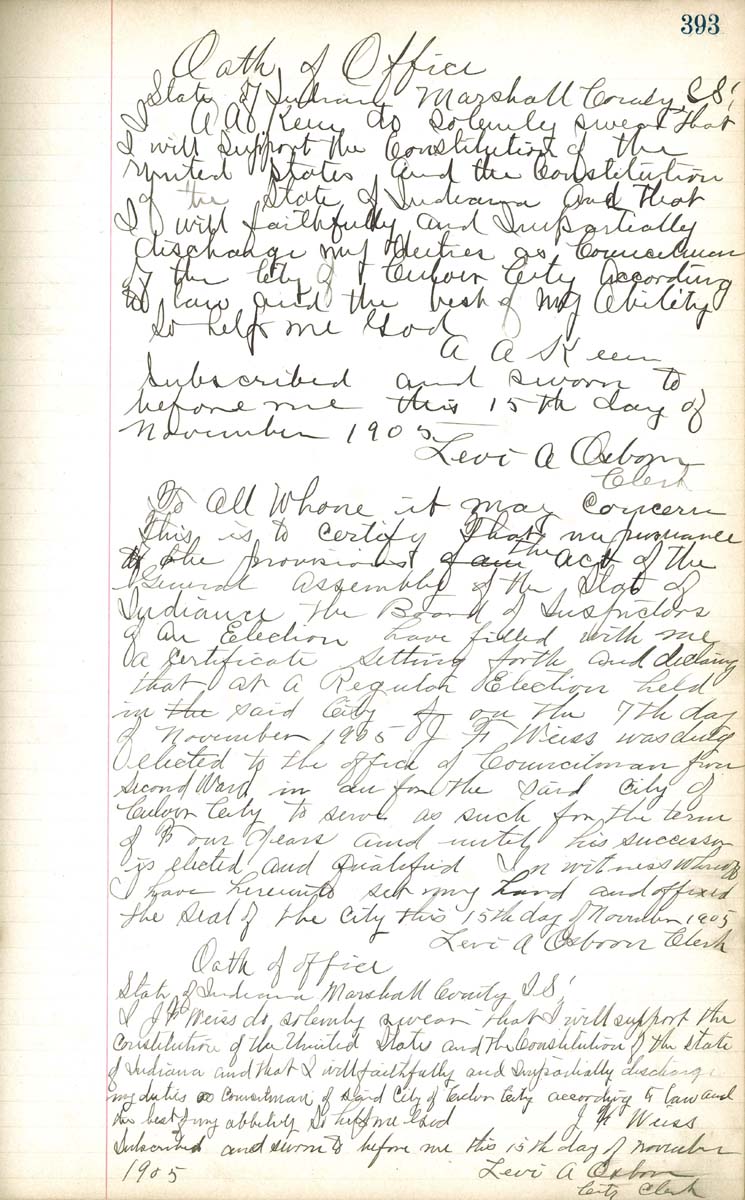 393
Oath of Office
State of Indiana Marshall County SS!
I A A Keen do solemnly swear that
I will support the Constitution of the
United States and the Constitution
of the State of Indiana and that
I will faithfully and Impartially
discharge my duties as Councilman
of the City of Culver City According
to law and the best of my Ability
So help me God
A A Keen
Subscribed and sworn to
before me this 15th day of
November 1905
Levi A Osborn
Clerk
To all Whome it may Concern
This is to certify that in pursuance
to the provisions of an the act of the
General Assembly of the State of
Indiana the Board of Inspectors
of An Election have filled with me
a certificate setting forth and declaring
that at a Regular Election held
in the said City on the 7th day
of November 1905 J F Weiss was duly
elected to the office of Councilman from
Second Ward in an for the said City of
Culver City to serve as such for the term
of Four years and until his successor
is elected and qualified In witness whereof
I have hereunto set my hand and affixed
the seal of the City this 15th day of November 1905
Levi A Osborn Clerk
Oath of office
State of Indiana Marshall County SS!
I J F Weiss do solemly swear that I will support the
Constitution of the United States and the Constitution of the State
of Indiana and that I will faithfully and Impartially discharge
my duties as Councilman of said City of Culver City according to law and
the best of my abbility So help me God J F Weiss
Subscribed and sworn to before me this 15th day of November
1905 Levi A Osborn
City Clerk